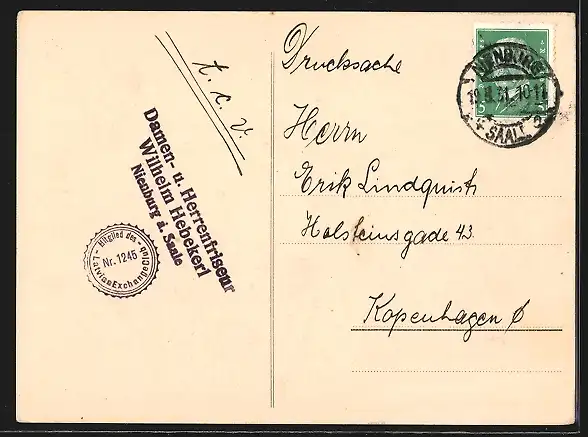 t. c. v.
Damen- u. Herrenfriseur
Wilhelm Hebekerl
Nienburg i. Saale
Mitglied des
Nr. 1245
LatvianExchangeClub
Drucksache
NIENBURG
31. 10-11
SAALE
Herrn
Erik Lindquist
Holsteinsgade 43.
Kopenhagen Ø